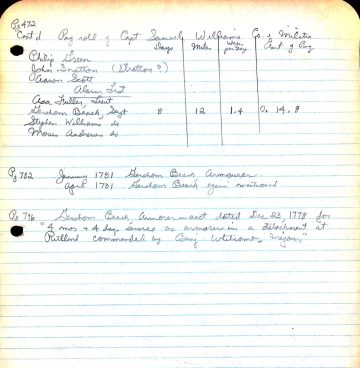 Pg 472
Cont'd Pay roll of Capt Samuel Williams Co. of Militia
Days Miles When per day Amt of Pay
Philip Green
John Sratton (Stratton?)
Aaron Scott
Alarm List
Asa Fuller, Lieut
Gershom Beach Sergt 8 12 1.4 0. 14. 8
Stephen Williams do
Moses Andrews do
Pg 702 January 1781 Gershom Beach Armourer
April 1781 Gershom Beach again mentioned
Pg 796 Gershom Beach Armorer - acct dated Dec 23, 1778 for
"4 mos & 4 days service as armorer in a detachment at
Rutland commanded by Benj Whitcomb, Major"